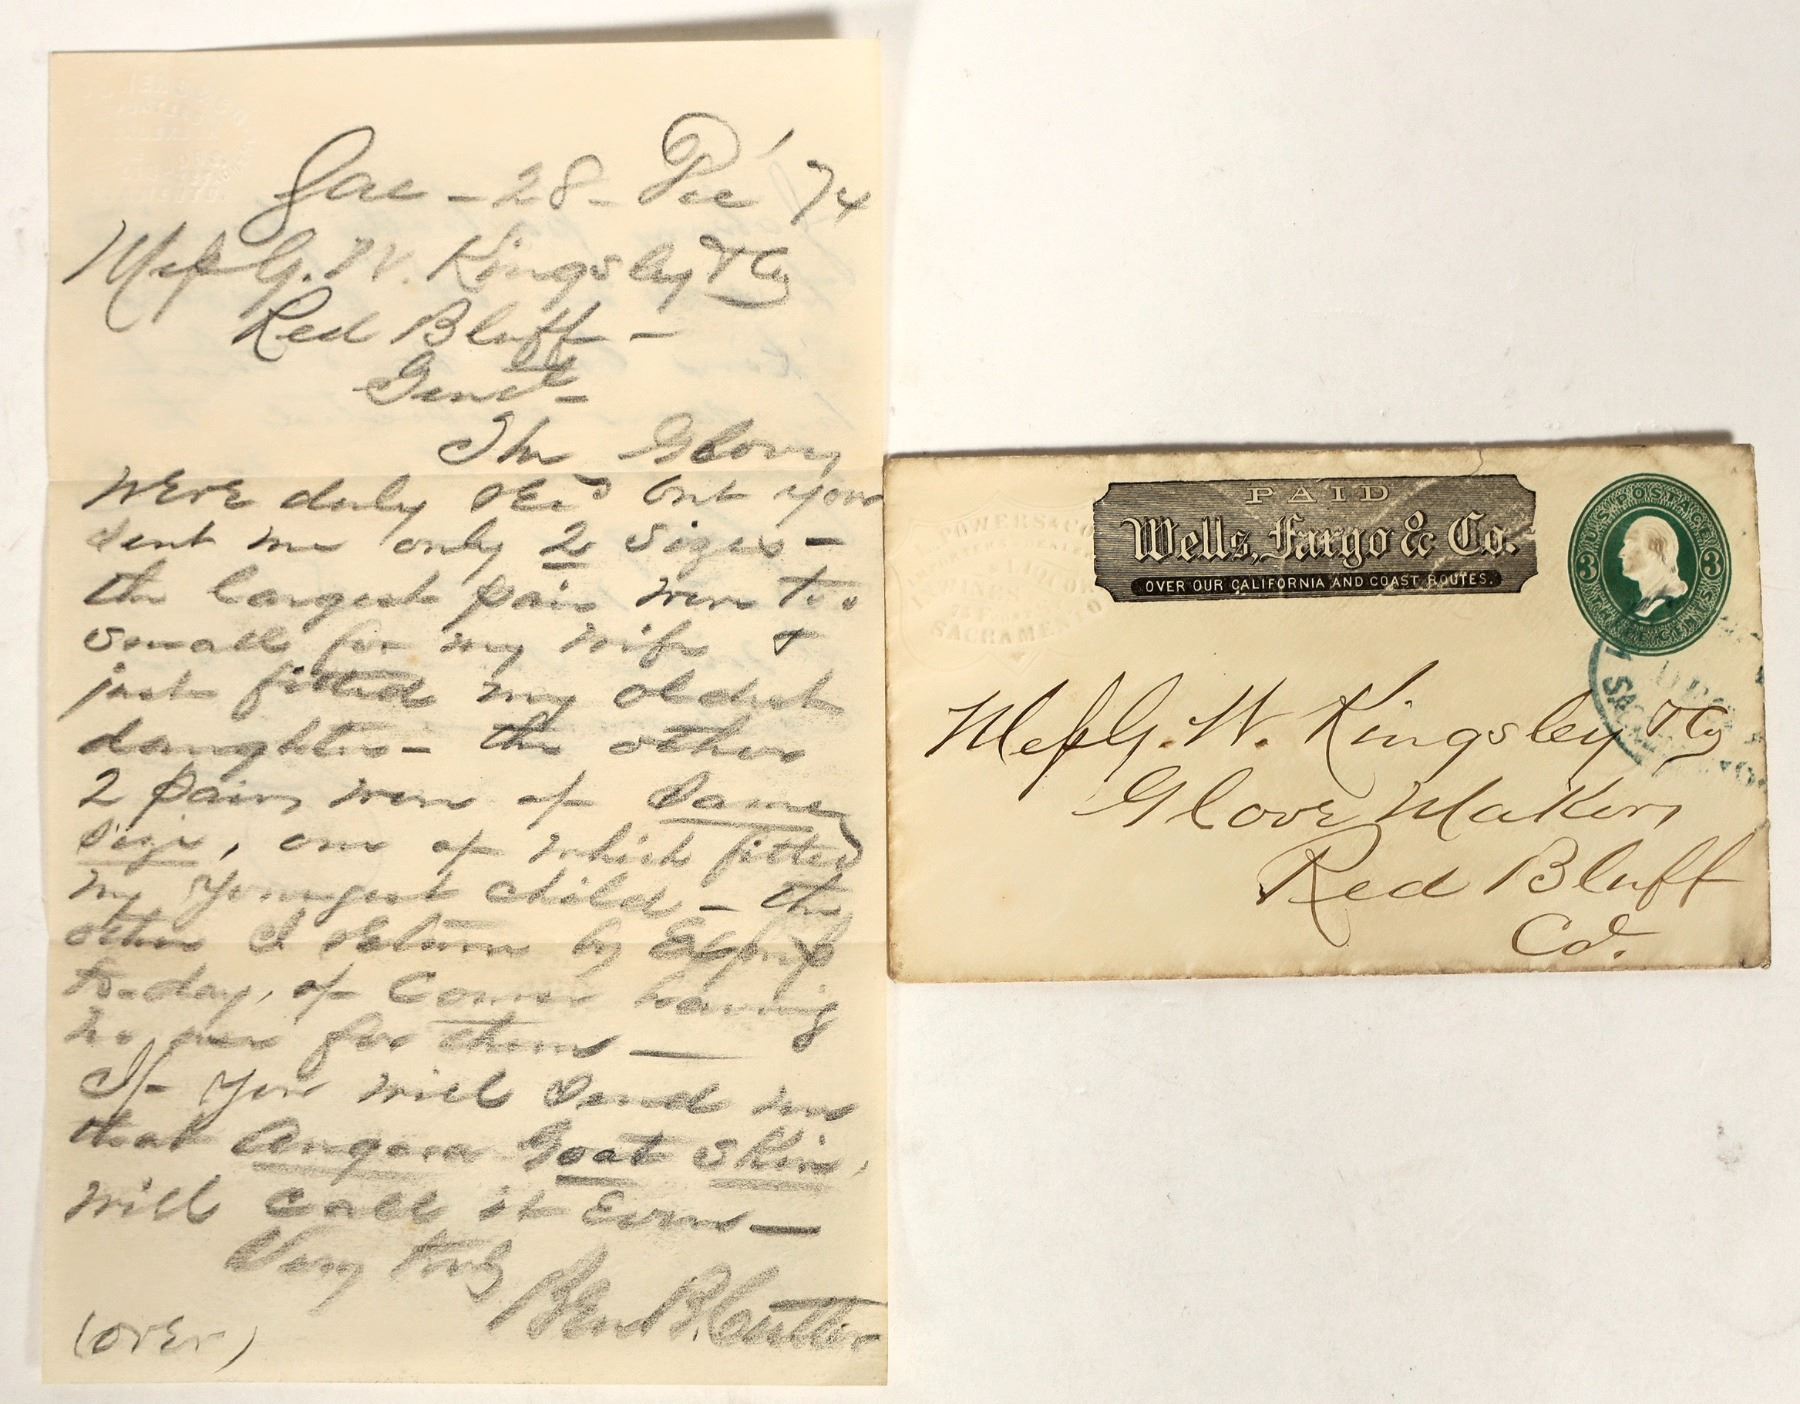 Sac - 28 - Dec '74
Mess G. W. Kingsley & Co
Red Bluff -
Gent -
The Gloves
were duly rec'd but you
sent me only 2 sizes -
the largest pair were too
small for my wife &
just fitted my oldest
daughter - the other
2 pairs were of same
size, one of which fitted
my youngest child - the
other I return by Express
to-day, of course having
no use for them -
If you will send me
that Angora Goat Skin,
will call it even -
Very truly
Ben P. Cutler
(over)
POWERS & CO
SACRAMENTO
PAID
Wells, Fargo & Co.
OVER OUR CALIFORNIA AND COAST ROUTES.
U.S. POSTAGE
3 3
THREE CENTS
Mess G. W. Kingsley & Co
Glove Makers
Red Bluff
Cal.